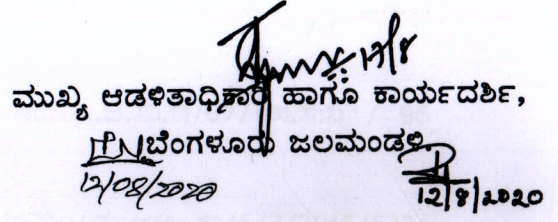 17/8
ಮುಖ್ಯ ಆಡಳಿತಾಧಿಕಾರಿ ಹಾಗೂ ಕಾರ್ಯದರ್ಶಿ,
ಬೆಂಗಳೂರು ಜಲಮಂಡಳಿ
12/08/2020 12/8/2020